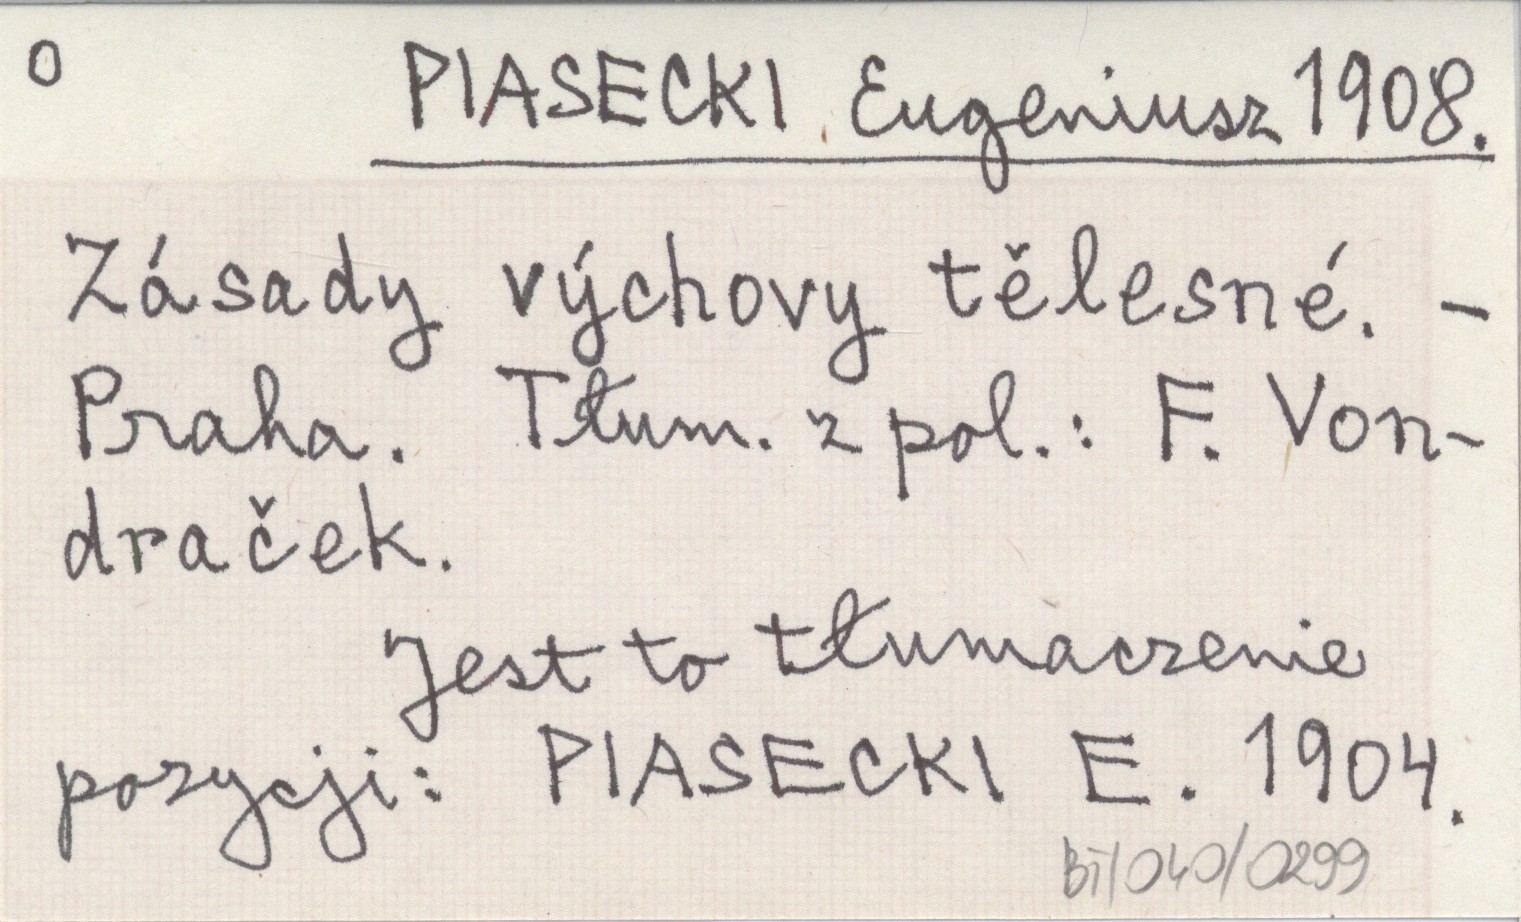 O PIASECKI Eugeniusz 1908.
Zásady výchovy tělesné. -
Praha. Tłum. z pol.: F. Von-
draček.
Jest to tłumaczenie
pozycji: PIASECKI E. 1904.
BT/040/0299